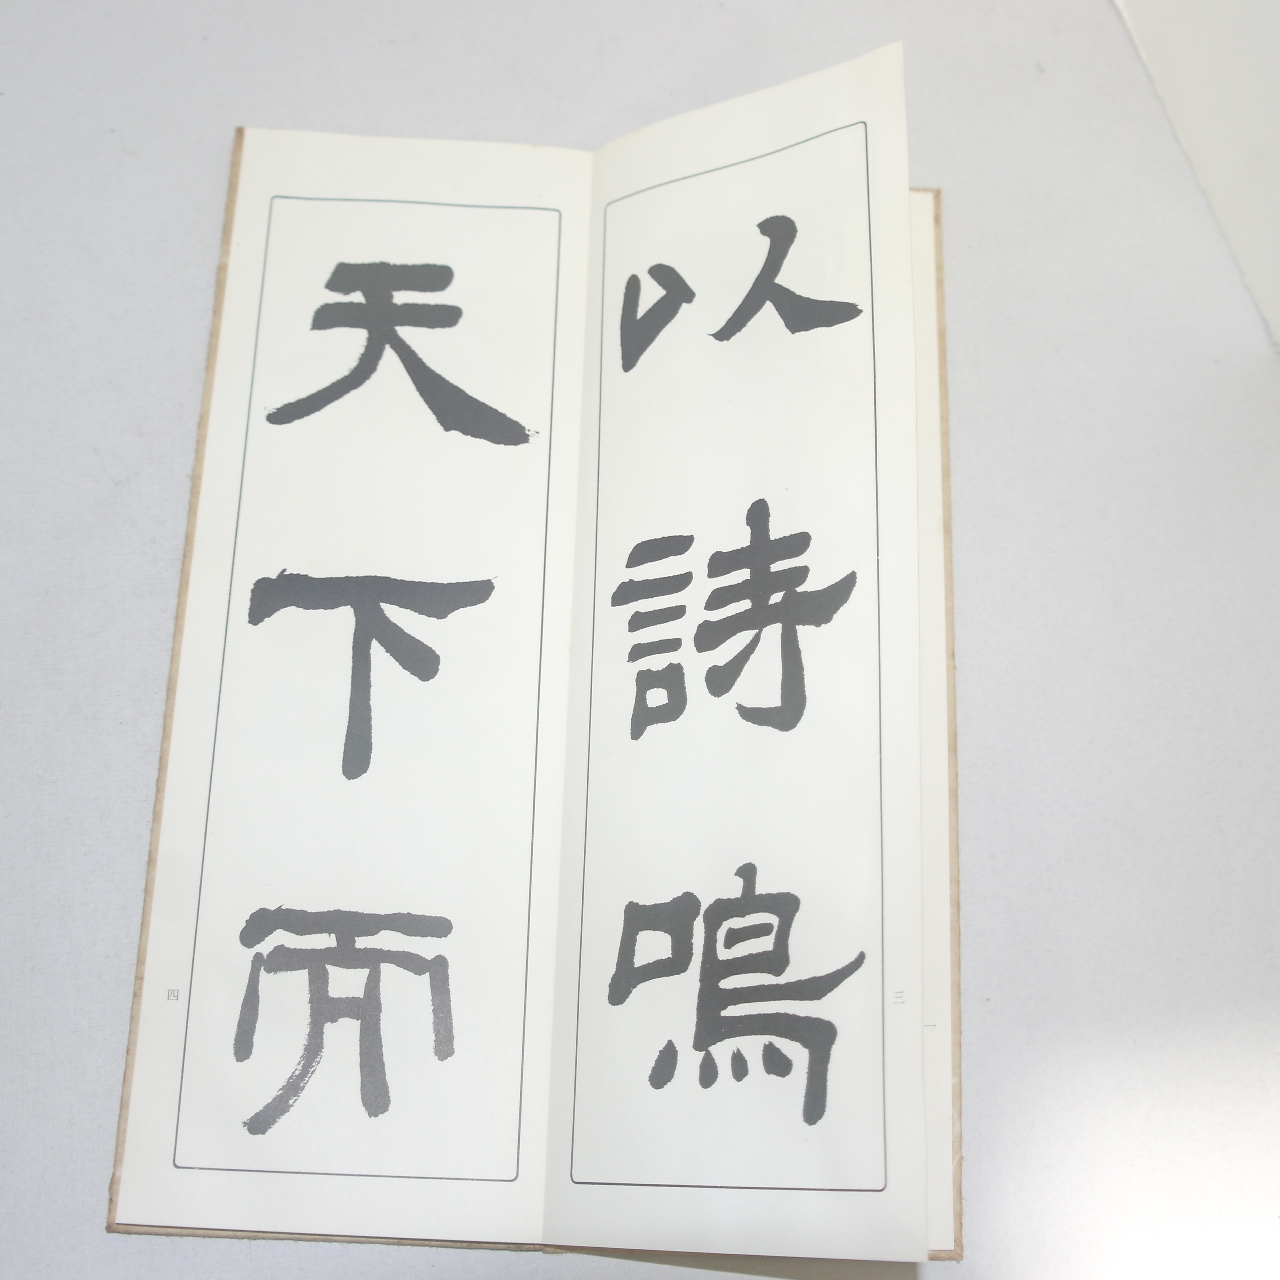 以詩鳴
三
天下而
四
一